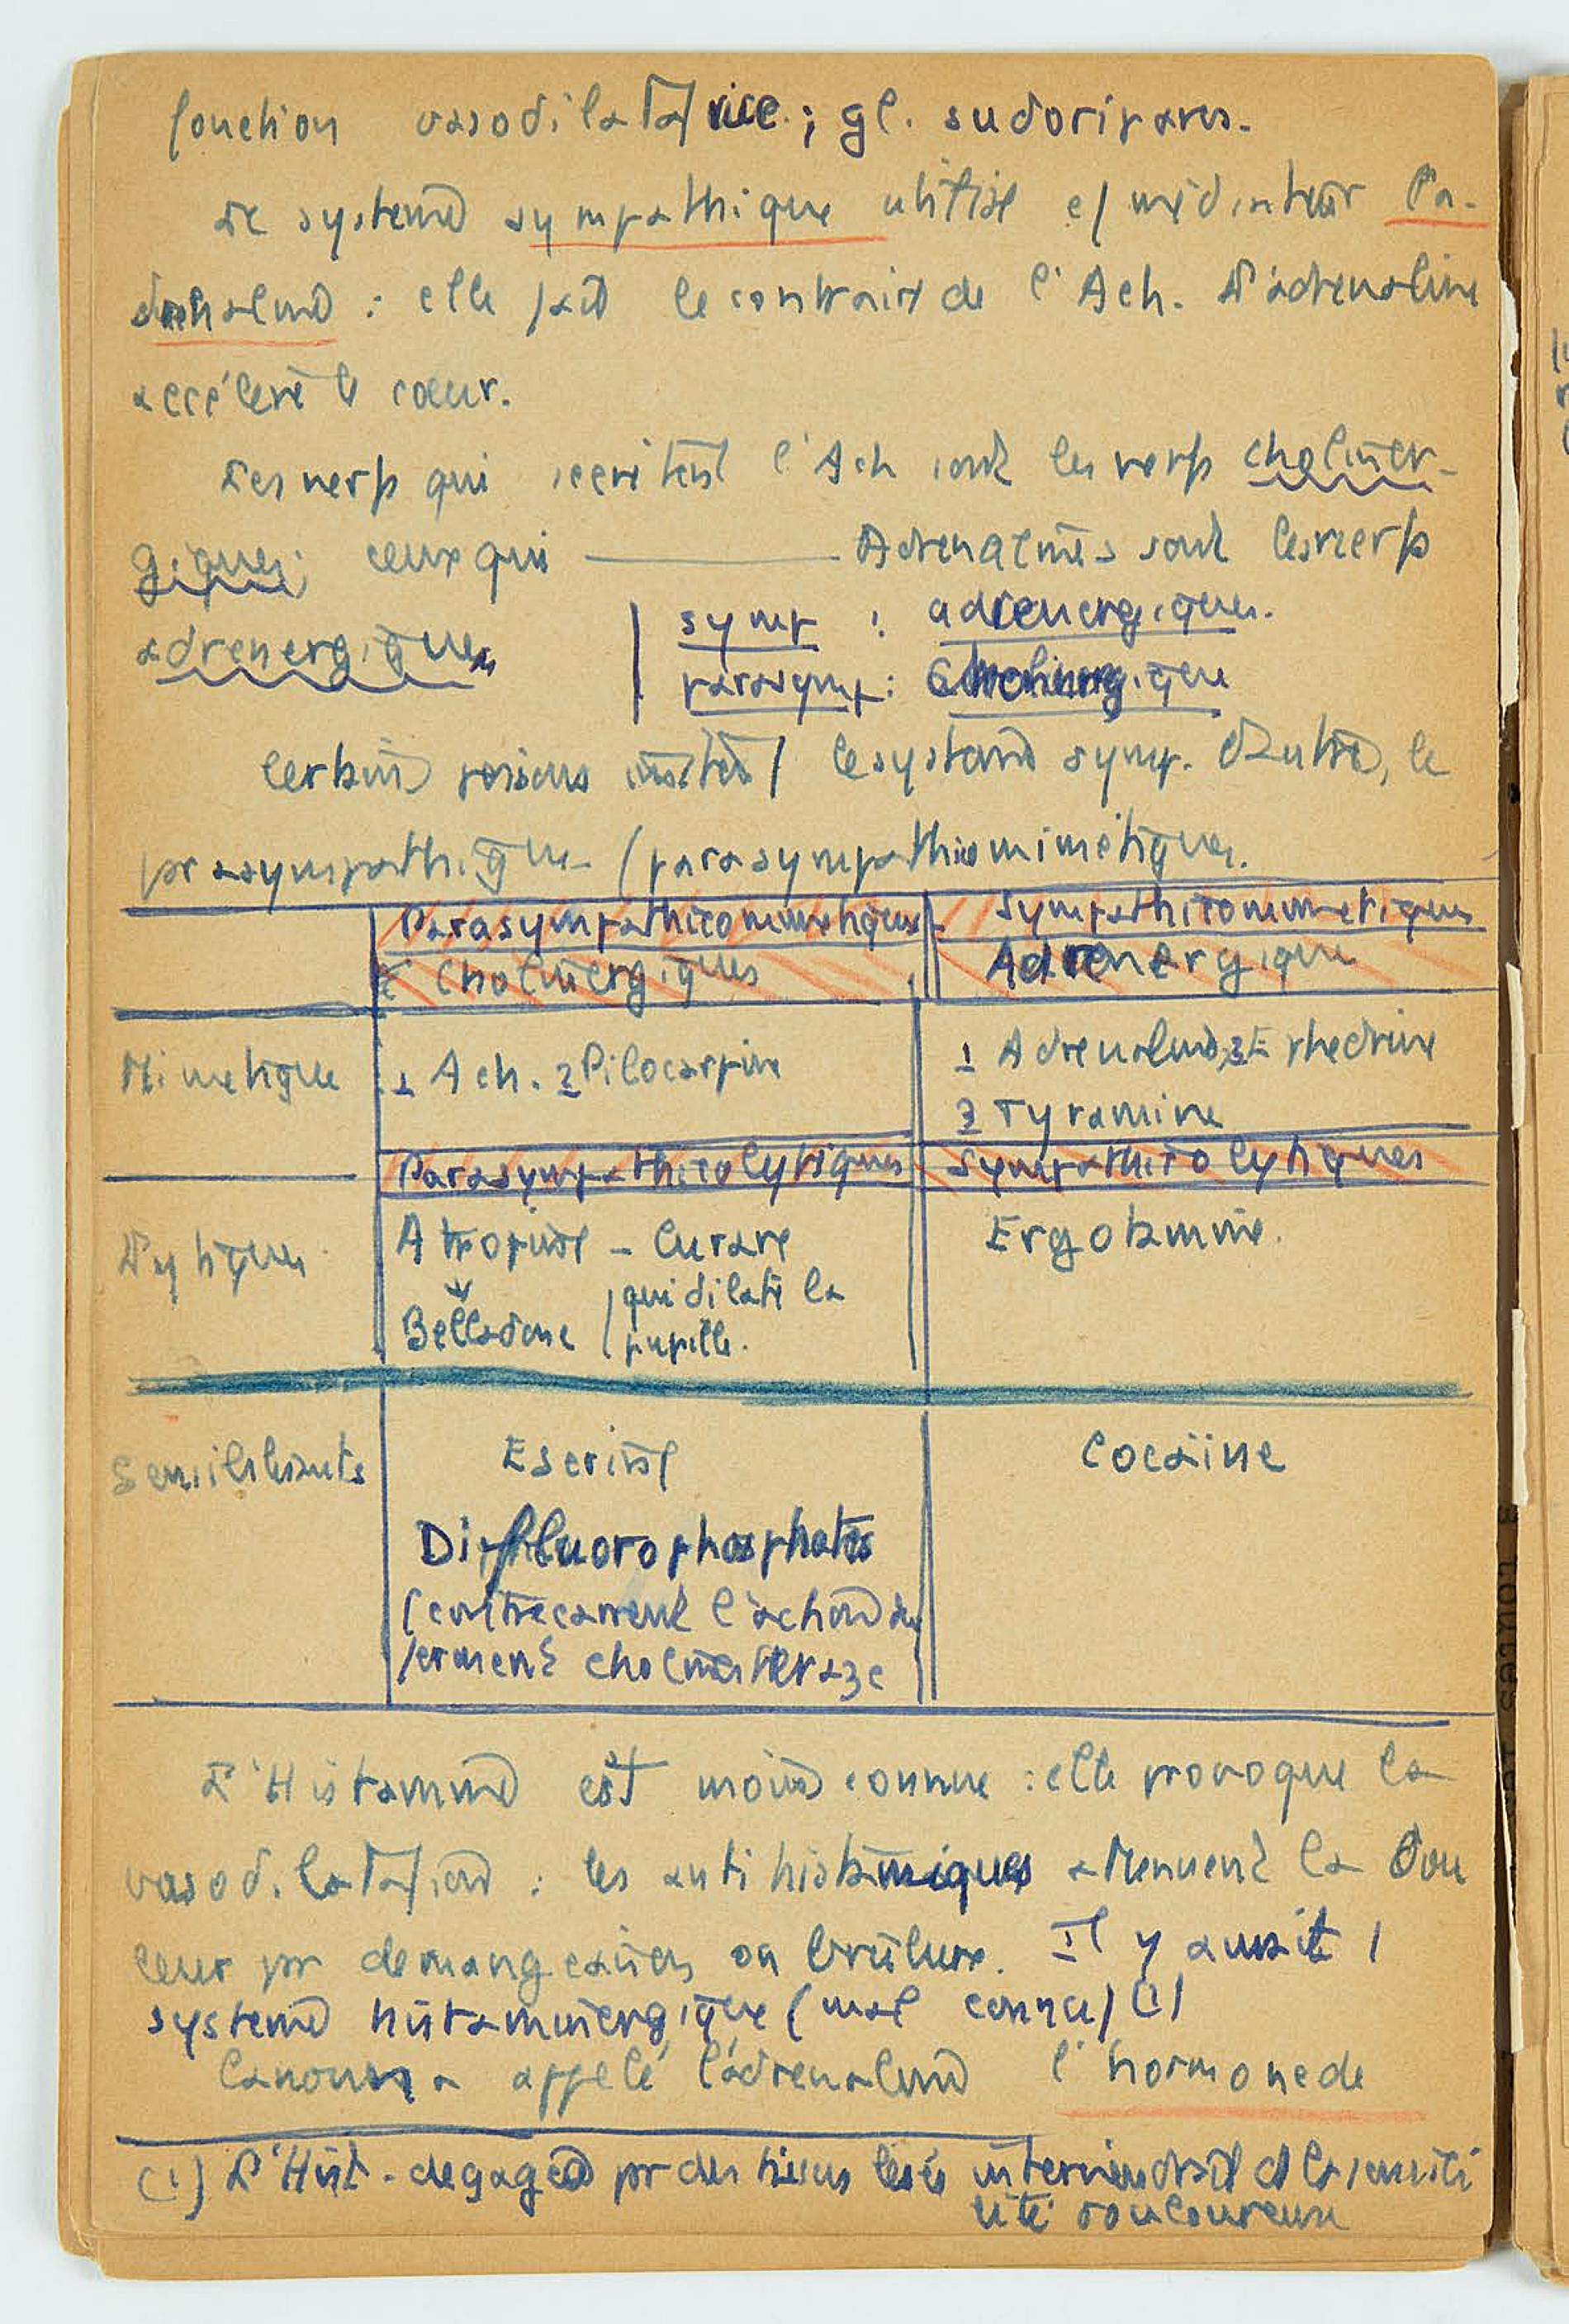 fonction vasodilatatrice ; gl. sudoripares.
Le système sympathique utilise c/ médiateur l'a-
drénaline : elle fait le contraire de l'Ach. L'adrenaline
accélère le coeur.
Les nerfs qui secrètent l'Ach sont les nerfs choliner-
giques; ceux qui ——— Adrenaline sont les nerfs
adrenergiques
symp : adrenergiques.
parasymp : Cholinergique
Certains poisons imitent le système symp. D'autres, le
parasympathique (parasympathicomimétiques.
Parasympathicomimetiques
Sympathicomimetiques
Cholinergiques
Adrenergique
Mimetique
1 Ach. 2 Pilocarpine
1 Adrenaline 2 Ephedrine
3 Tyramine
Parasympathicolytiques
Sympathicolytiques
Lytiques
Atropine - Curare
Ergotamine.
Belladone
qui dilate la
pupille.
Sensibilisants
Eserine
Cocaïine
Difluorophosphates
(contrecarrent l'action du
ferment cholinesteraze
L'Histamine est moins connue : elle provoque la
vasodilatation : les antihistaminiques attenuent la dou
leur pr demangeaisons ou brûlure. Il y aurait 1
système histaminergique (mal connu) (1)
a appelé l'adrenaline l'hormone de
(1) L'Hist. degagée pr des tissus lésés interviendrait ds la sensibi
lité douloureuse